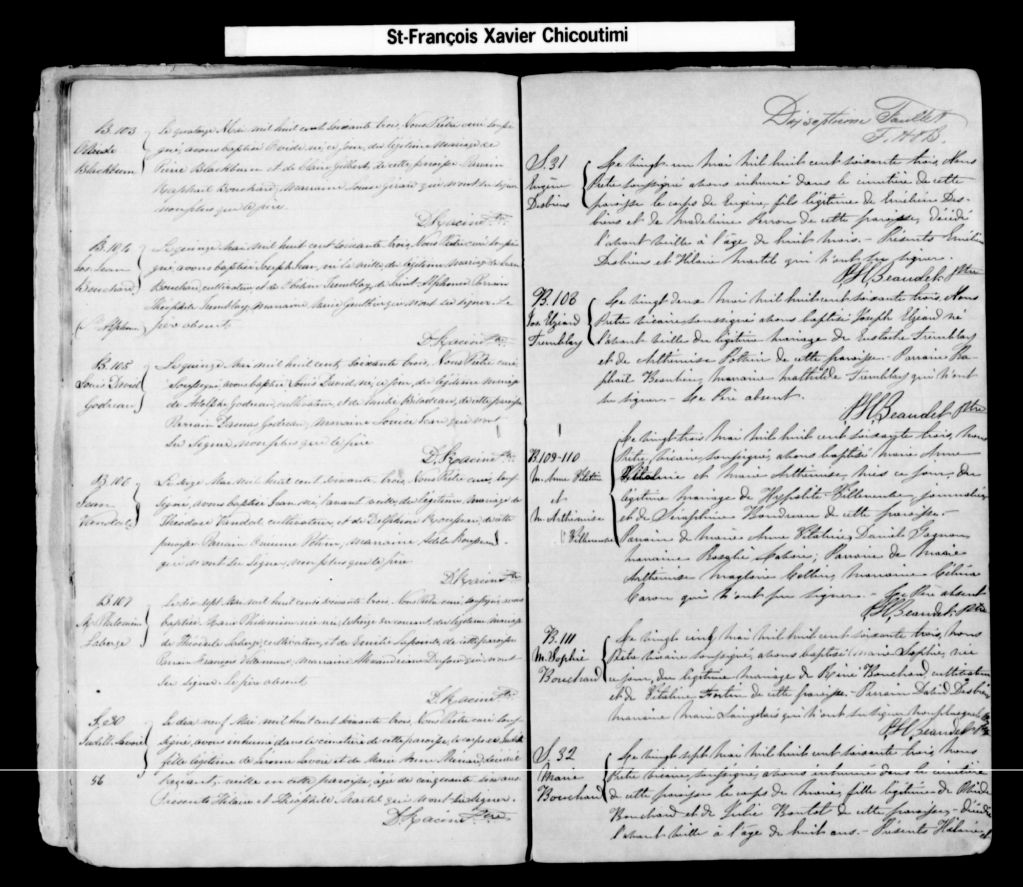 St-François Xavier Chicoutimi
B. 103
Blackburn
Le quatorze Mai mil huit cent soixante trois, Nous Prêtre curé soussi-
gné, avons baptisé Ovide, né ce jour, du légitime mariage de
Pierre Blackburn et de Claire Guilbert, de cette paroisse Parrain
Raphaël Bouchard, marraine Louise Girard qui n'ont su signer
non plus que le père.
D. Racine Ptre
B. 104
Jos. Jean
Bouchard
Le quinze Mai mil huit cent soixante trois, Nous Prêtre curé soussi-
gné, avons baptisé Joseph Jean, né la veille, du légitime mariage de Jean
Bouchard, cultivateur et de Tremblay, de Saint Alphonse Parrain
Théophile Tremblay, marraine Marie Gauthier qui n'ont su signer. Le
père absent
D. Racine Ptre
B. 105
Louis David
Godreau
Le quinze Mai mil huit cent soixante trois, Nous Prêtre curé
soussigné, avons baptisé Louis David, né ce jour, du légitime mariage
de Adolphe Godreau, cultivateur, et de Emilie Bilodeau, de cette paroisse
Parrain Damas Godreau, marraine Louise Jean qui n'ont
su signer, non plus que le père
D. Racine Ptre
B. 106
Jean
Vandal
Le seize Mai mil huit cent soixante trois, Nous Prêtre curé sous-
signé, avons baptisé Jean, né l'avant veille du légitime mariage de
Théodose Vandal cultivateur, et de Delphine Rousseau, de cette
paroisse Parrain Potvin, marraine Adèle Rousseau
qui n'ont su signer, non plus que le père
D. Racine Ptre
B. 107
M. Philomène
Laberge
Le dix sept Mai mil huit cent soixante trois, Nous Prêtre curé soussigné avons
baptisé Marie Philomène née le treize du courant, du légitime mariage
de Théodule Laberge, cultivateur, et de de cette paroisse
Parrain François Villeneuve, marraine Dufour qui n'ont
su signer. Le père absent
D. Racine Ptre
S. 30
Judith Savoie
56
Le dix neuf Mai mil huit cent soixante trois, Nous Prêtre curé sous-
signé, avons inhumé dans le cimetière de cette paroisse, le corps de Judith
fille légitime de Jerome Savoie et de Marie Anne décédée
veille en cette paroisse, âgée de cinquante six ans
Présents Hilaire et Théophile Martel qui n'ont su signer.
D. Racine Ptre
Dixseptième Feuillet
S. 31
Eugène
Desbiens
Le vingt-un mai mil huit cent soixante trois, Nous
Prêtre soussigné avons inhumé dans le cimetière de cette
paroisse le corps de Eugène, fils légitime de Emilien Des-
biens et de Madeleine Perron de cette paroisse, décédé
l'avant veille à l'âge de huit mois. - Présents Emilien
Desbiens et Hilaire Martel qui n'ont su signer.
P.H. Beaudet Ptre
B. 108
Jos. Elzéard
Tremblay
Le vingt deux mai mil huit cent soixante trois, Nous
Prêtre vicaire, soussigné avons baptisé Joseph Elzéard né
l'avant veille du légitime mariage de Eustache Tremblay
et de Arthémise Potvin de cette paroisse - Parrain Ra-
phaël Beaulieu, marraine Mathilde Tremblay qui n'ont
su signer. - Le Père absent.
P.H. Beaudet Ptre
B. 109-110
M. Anne Vitaline
et
M. Arthémise
Villeneuve
Le vingt trois mai mil huit cent soixante trois, nous
Prêtre vicaire, soussigné, avons baptisé marie Anne
Vitaline et marie Arthémise, nées ce jour, du
légitime mariage de Hypolite Villeneuve, journalier,
et de Séraphine Boudreau de cette paroisse. -
Parrain de marie Anne Vitaline, Daniel Gagnon,
marraine Rosalie ; Parrain de Marie
Arthémise Magloire Cottin, marraine Célina
Caron qui n'ont pu signer. - Le Père absent
P.H. Beaudet Ptre
B. 111
M. Sophie
Bouchard
Le vingt cinq mai mil huit cent soixante trois, nous
Prêtre vicaire soussigné, avons baptisé marie Sophie, née
ce jour, du légitime mariage de Réné Bouchard, cultivateur
et de Vitaline Fortin de cette paroisse. - Parrain David Desbiens
marraine Marie Langlais qui n'ont su signer non plus que le
P.H. Beaudet Ptre
S. 32
Marie
Bouchard
Le vingt sept mai mil huit cent soixante trois nous
Prêtre vicaire, soussigné, avons inhumé dans le cimetière
de cette paroisse le corps de marie, fille légitime de
Bouchard et de Julie Boutot de cette paroisse, - décédée
l'avant veille à l'âge de huit ans. - Présents Hilaire et